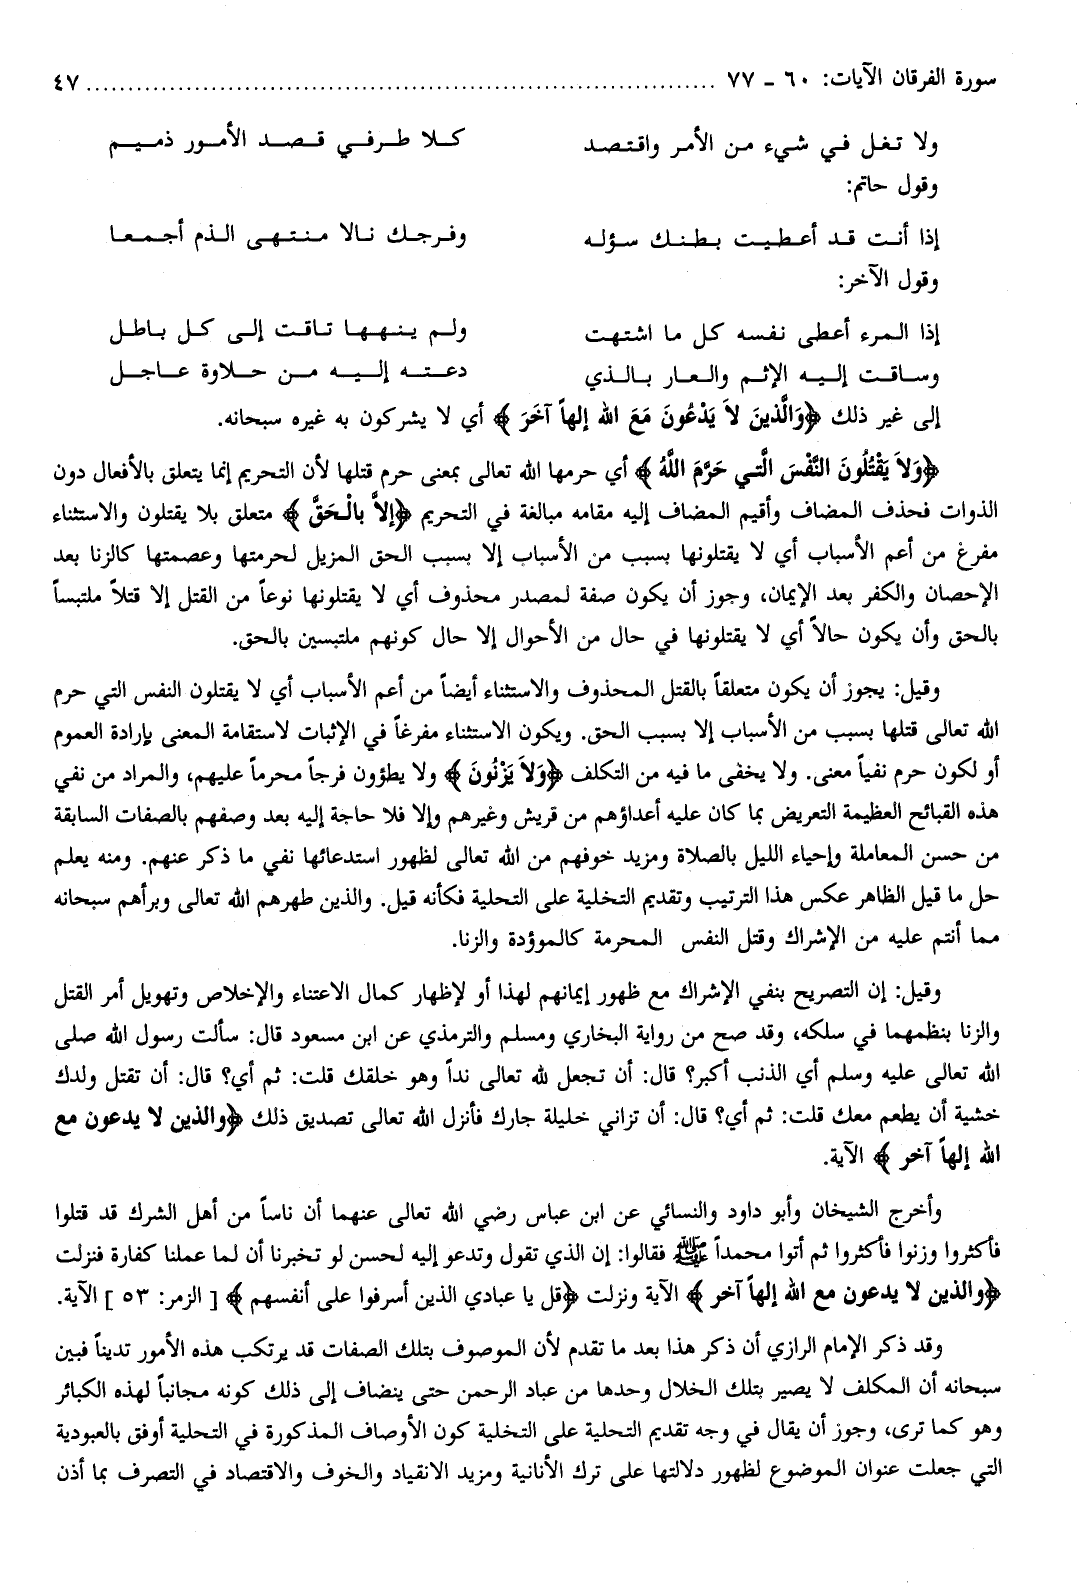 سورة الفرقان الآيات: ٦٠ ـ ٧٧ ................................................................................ ٤٧
ولا تغل في شيء من الأمر واقتصد كلا طرفي قصد الأمور ذميم
وقول حاتم:
إذا أنت قد أعطيت بطنك سؤله وفرجك نالا منتهى الذم أجمعا
وقول الآخر:
إذا المرء أعطى نفسه كل ما اشتهت ولم ينهها تاقت إلى كل باطل
وساقت إليه الإثم والعار بالذي دعته إليه من حلاوة عاجل
إلى غير ذلك ﴿وَالَّذينَ لاَ يَدْعُونَ مَعَ الله إلهاً آخَرَ ﴾ أي لا يشركون به غيره سبحانه.
﴿وَلاَ يَقْتُلُونَ النَّفْسَ الَّتي حَرَّمَ اللَّهُ ﴾ أي حرمها الله تعالى بمعنى حرم قتلها لأن التحريم إنما يتعلق بالأفعال دون
الذوات فحذف المضاف وأقيم المضاف إليه مقامه مبالغة في التحريم ﴿إلاَّ بالْحَقِّ ﴾ متعلق بلا يقتلون والاستثناء
مفرغ من أعم الأسباب أي لا يقتلونها بسبب من الأسباب إلا بسبب الحق المزيل لحرمتها وعصمتها كالزنا بعد
الإحصان والكفر بعد الإيمان، وجوز أن يكون صفة لمصدر محذوف أي لا يقتلونها نوعاً من القتل إلا قتلاً ملتبساً
بالحق وأن يكون حالاً أي لا يقتلونها في حال من الأحوال إلا حال كونهم ملتبسين بالحق.
وقيل: يجوز أن يكون متعلقاً بالقتل المحذوف والاستثناء أيضاً من أعم الأسباب أي لا يقتلون النفس التي حرم
الله تعالى قتلها بسبب من الأسباب إلا بسبب الحق. ويكون الاستثناء مفرغاً في الإثبات لاستقامة المعنى بإرادة العموم
أو لكون حرم نفياً معنى. ولا يخفى ما فيه من التكلف ﴿وَلاَ يَزْنُونَ ﴾ ولا يطؤون فرجاً محرماً عليهم، والمراد من نفي
هذه القبائح العظيمة التعريض بما كان عليه أعداؤهم من قريش وغيرهم وإلا فلا حاجة إليه بعد وصفهم بالصفات السابقة
من حسن المعاملة وإحياء الليل بالصلاة ومزيد خوفهم من الله تعالى لظهور استدعائها نفي ما ذكر عنهم. ومنه يعلم
حل ما قيل الظاهر عكس هذا الترتيب وتقديم التخلية على التحلية فكأنه قيل. والذين طهرهم الله تعالى وبرأهم سبحانه
مما أنتم عليه من الإشراك وقتل النفس المحرمة كالموؤدة والزنا.
وقيل: إن التصريح بنفي الإشراك مع ظهور إيمانهم لهذا أو لإظهار كمال الاعتناء والإخلاص وتهويل أمر القتل
والزنا بنظمهما في سلكه، وقد صح من رواية البخاري ومسلم والترمذي عن ابن مسعود قال: سألت رسول الله صلى
الله تعالى عليه وسلم أي الذنب أكبر؟ قال: أن تجعل لله تعالى نداً وهو خلقك قلت: ثم أي؟ قال: أن تقتل ولدك
خشية أن يطعم معك قلت: ثم أي؟ قال: أن تزاني خليلة جارك فأنزل الله تعالى تصديق ذلك ﴿والذين لا يدعون مع
الله إلهاً آخر ﴾ الآية.
وأخرج الشيخان وأبو داود والنسائي عن ابن عباس رضي الله تعالى عنهما أن ناساً من أهل الشرك قد قتلوا
فأكثروا وزنوا فأكثروا ثم أتوا محمداً ﷺ فقالوا: إن الذي تقول وتدعو إليه لحسن لو تخبرنا أن لما عملنا كفارة فنزلت
﴿والذين لا يدعون مع الله إلهاً آخر ﴾ الآية ونزلت ﴿قل يا عبادي الذين أسرفوا على أنفسهم ﴾ [ الزمر: ٥٣ ] الآية.
وقد ذكر الإمام الرازي أن ذكر هذا بعد ما تقدم لأن الموصوف بتلك الصفات قد يرتكب هذه الأمور تديناً فبين
سبحانه أن المكلف لا يصير بتلك الخلال وحدها من عباد الرحمن حتى ينضاف إلى ذلك كونه مجانباً لهذه الكبائر
وهو كما ترى، وجوز أن يقال في وجه تقديم التحلية على التخلية كون الأوصاف المذكورة في التحلية أوفق بالعبودية
التي جعلت عنوان الموضوع لظهور دلالتها على ترك الأنانية ومزيد الانقياد والخوف والاقتصاد في التصرف بما أذن